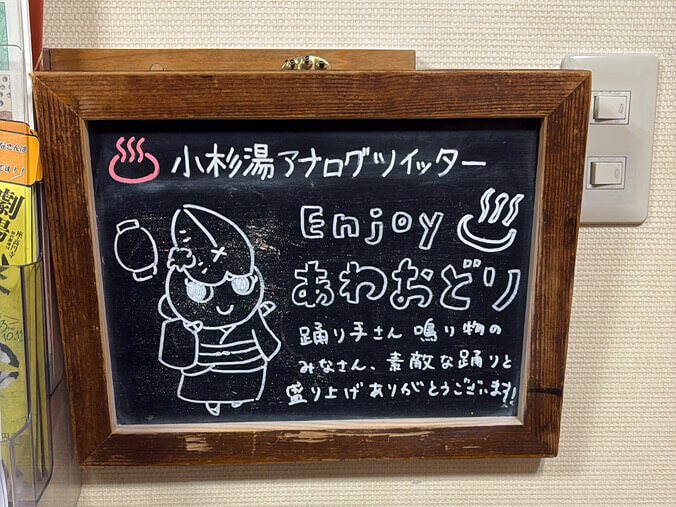 小杉湯アナログツイッター
Enjoy
あわおどり
踊り手さん 鳴り物の
みなさん、素敵な踊りと
盛り上げありがとうございます!!
劇場